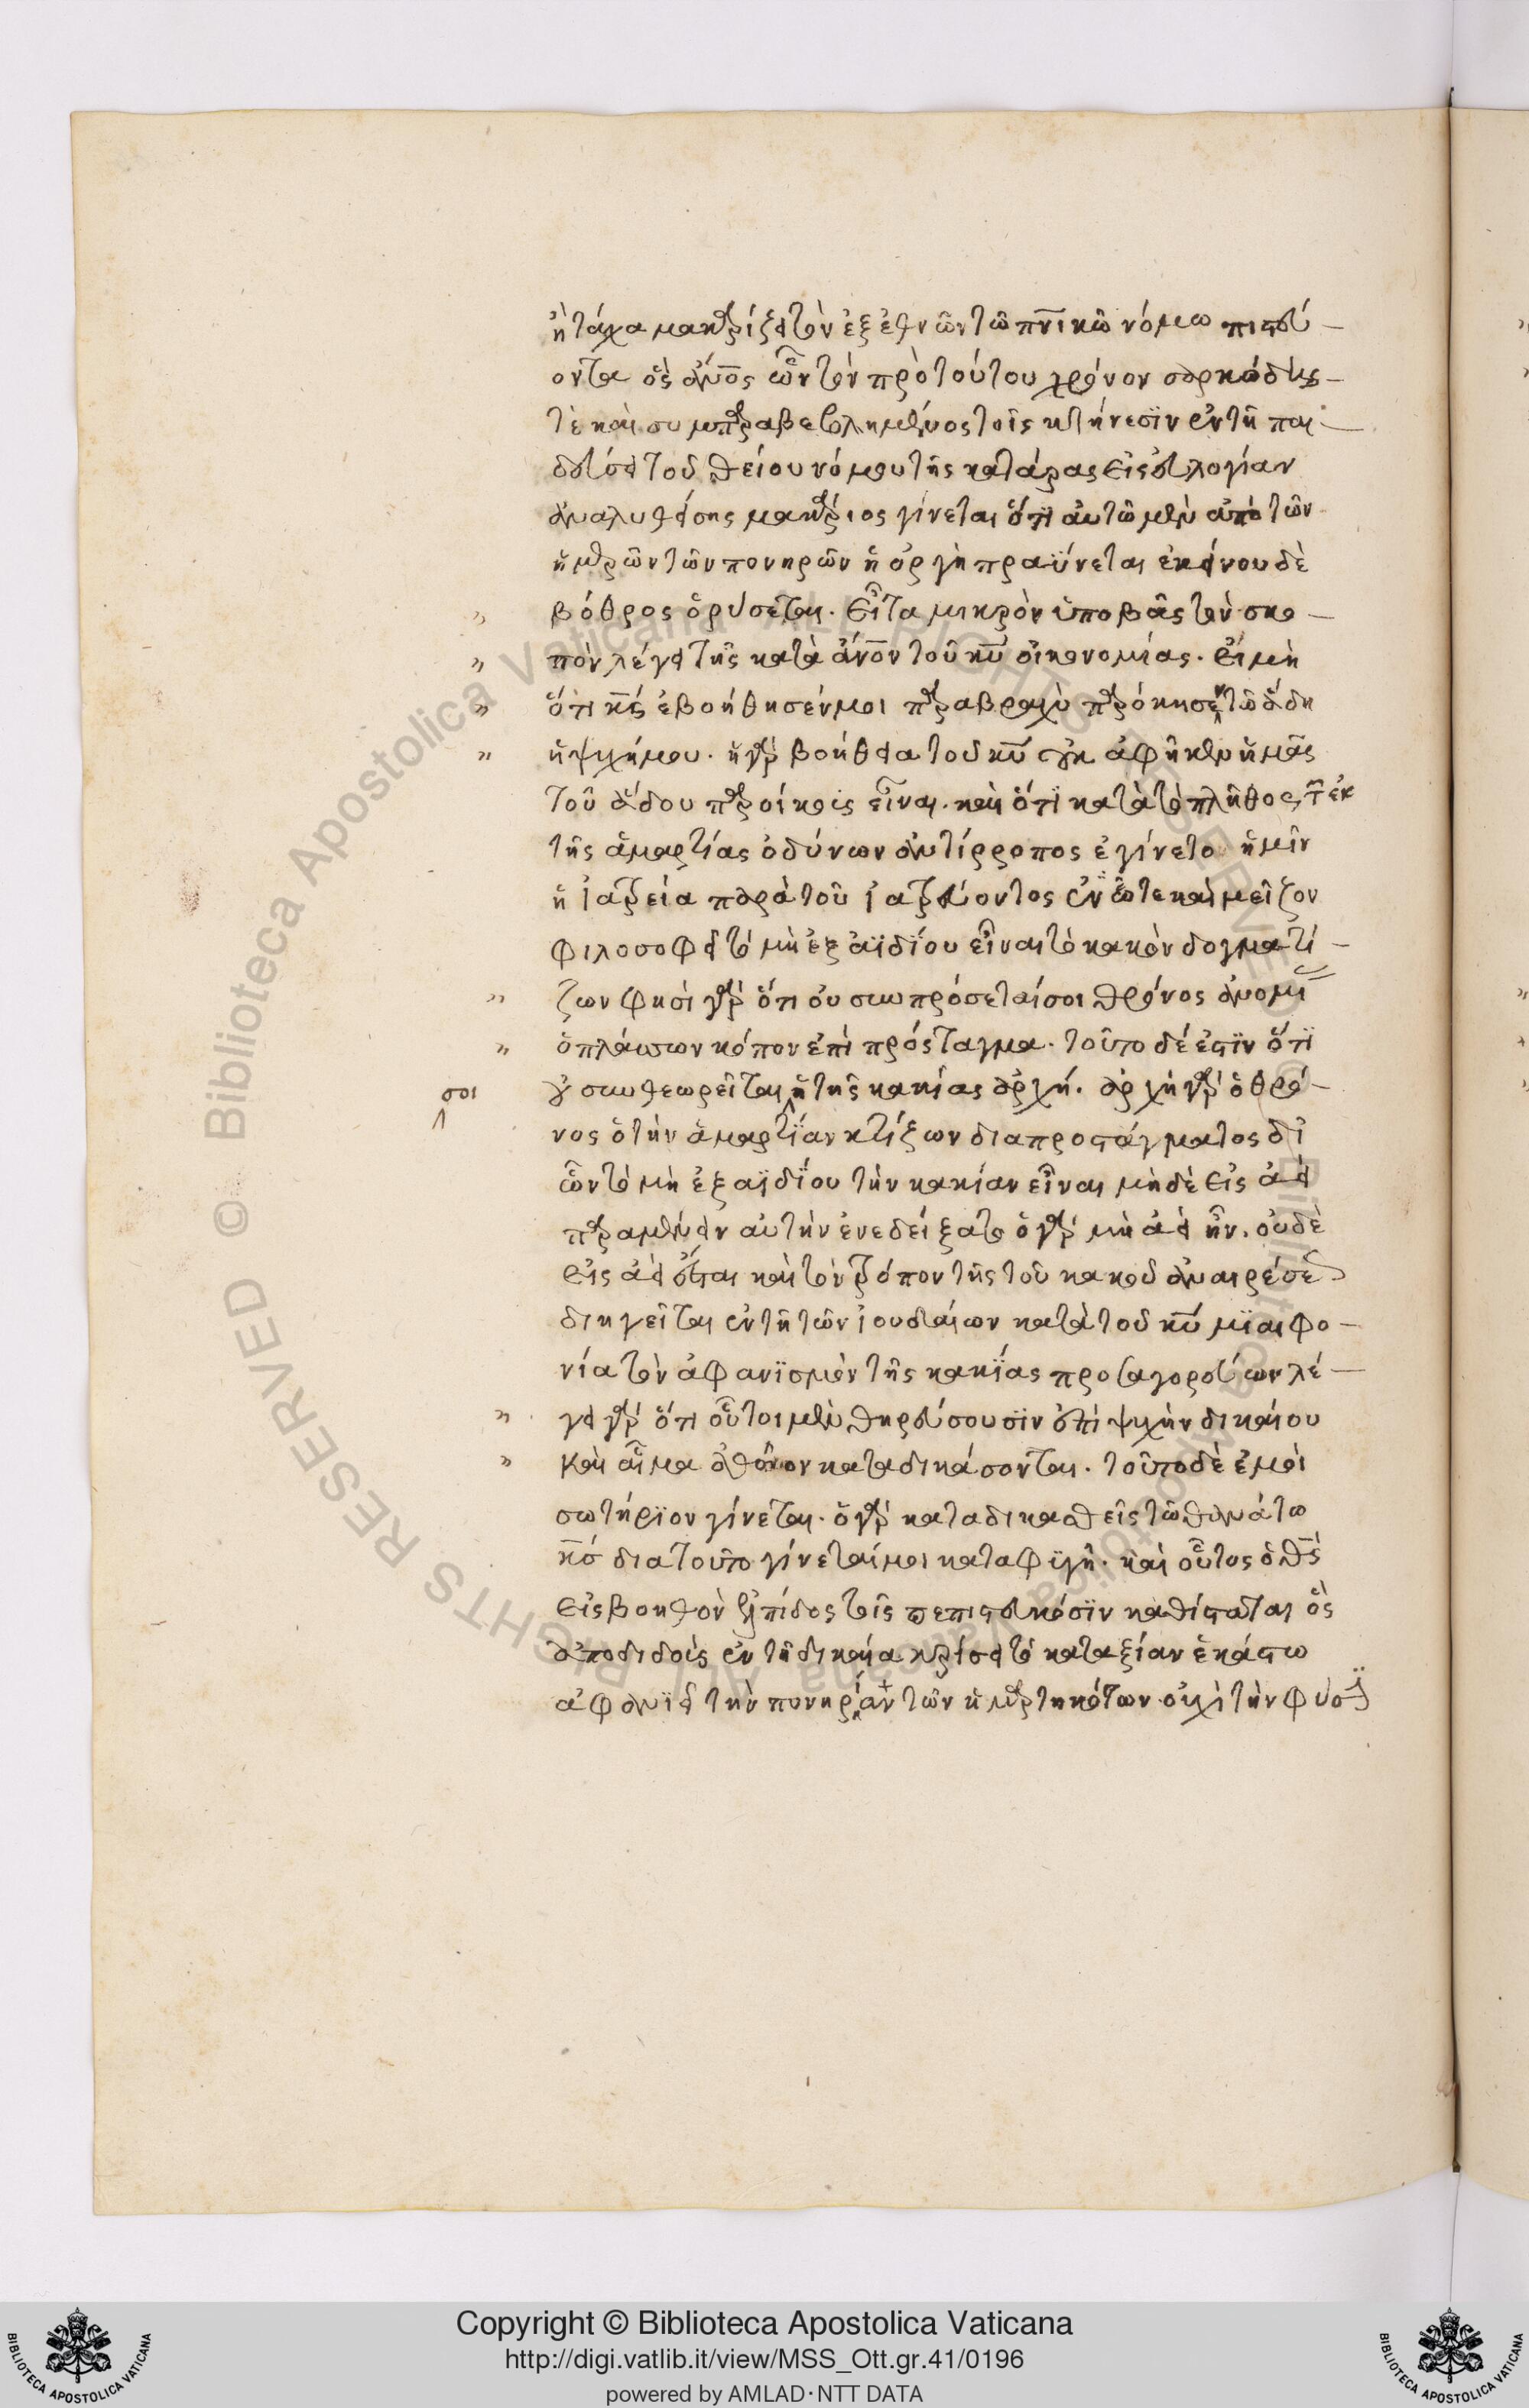 ἢ τάχα μακαρίζει τὸν ἐξ ἐθνῶν τῶ πνϊκῶ νόμω πιστεύ-
οντα ὃς ἄνος ὢν τὸν πρὸ τούτου χρόνον σαρκώδης
τὲ καὶ συμπαραβεβλημένος τοῖς κτήνεσϊν ἐν τῆ παι-
δεύσει τοῦ θείου νόμου τῆς κατάρας εἰς εὐλογίαν
ἀναλυθείσης μακάριος γίνεται ὅτι αὐτῶ μὲν ἀπὸ τῶν
ἡμερῶν τῶν πονηρῶν ἡ ὀργὴ πραΰνεται ἐκείνου δὲ
" βόθρος ὀρύσεται. Εἶτα μικρὸν ὑποβὰς τὸν σκο-
" πὸν λέγει τῆς κατὰ ἄνον τοῦ κυ οἰκονομίας. Εἰ μὴ
" ὅτι κς ἐβοήθησέν μοι παραβραχὺ παρώκησεν τῶ ἅδη
" ἡ ψυχή μου. ἡ γὰρ βοήθεια τοῦ κυ οὐκ ἀφῆκεν ἡμᾶς
τοῦ ἅδου παροίκοις εἶναι. καὶ ὅτι κατὰ τὸ πλῆθος τ ἐκ
τῆς ἁμαρτίας ὀδύνων ἀντίρροπος ἐγίνετο ἡμῖν
ἡ ἰατρεία παρὰ τοῦ ἰατρεύοντος ἐν ὧ τε καὶ μεῖζον
φιλοσοφεῖ τὸ μὴ ἐξ ἀϊδΐου εἶναι τὸ κακὸν δογματί-
" ζων φησὶ γὰρ ὅτι οὐ συμπρόσεταί σοι θρόνος ἀνομί
" ὁ πλάσσων κόπον ἐπὶ πρόσταγμα. τοῦτο δέ ἐστϊν ὅτϊ
σοι οὐ συνθεωρεῖται ἡ τῆς κακίας ἀρχή. ἀρχὴ γὰρ ὁ θρό-
νος ὁ τὴν ἁμαρτΐαν κτίζων διαπροστάγματος δι
ὧν τὸ μὴ ἐξ αϊδΐου τὴν κακίαν εἶναι μὴ δὲ εἰς ἀεὶ
παραμένειν αὐτὴν ἐνεδείξατο ὃ γὰρ μὴ ἀεὶ ἦν. οὐδὲ
εἰς ἀεὶ ἔσται καὶ τὸν τρόπον τῆς τοῦ κακοῦ ἀναιρέσεως
διηγεῖται ἐν τῆ τῶν ἰουδαίων κατὰ τοῦ κυ μϊαιφο-
νία τὸν ἀφανϊσμὸν τῆς κακΐας προσαγορεύων λέ-
" γει γὰρ ὅτι οὗτοι μὲν θηρεύσουσϊν ἐπὶ ψυχὴν δικαίου
" καὶ αἷμα ἀθῶον καταδικάσονται. τοῦτο δὲ ἐμοὶ
σωτήρϊον γίνεται. ὁ γὰρ καταδικασθεὶς τῶ θανάτω
κσ διατοῦτο γίνεταί μοι καταφϋγὴ. καὶ οὗτος ὁ θς
εἰς βοηθὸν ἐλπίδος τοῖς πεπιστευκόσϊν καθίσταται ὃς
ἀποδιδοὺς ἐν τῆ δικαία κρίσει τὸ καταξίαν ἑκάστω
ἀφανιεῖ τὴν πονηρίαν τῶν ἡμαρτηκότων οὐχὶ τὴν φύσϊν
Copyright © Biblioteca Apostolica Vaticana
http://digi.vatlib.it/view/MSS_Ott.gr.41/0196
powered by AMLAD·NTT DATA
BIBLIOTECA APOSTOLICA VATICANA
BIBLIOTECA APOSTOLICA VATICANA